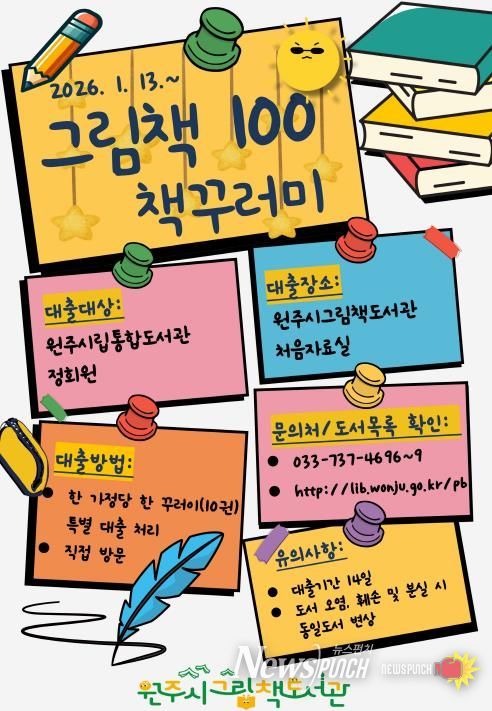 2026. 1. 13.~
그림책 100
책꾸러미
대출대상:
원주시립통합도서관
정회원
대출장소:
원주시그림책도서관
처음자료실
대출방법:
한 가정당 한 꾸러미(10권)
특별 대출 처리
직접 방문
문의처/도서목록 확인:
033-737-4696~9
http://lib.wonju.go.kr/pb
유의사항:
대출기간 14일
도서 오염, 훼손 및 분실 시
동일도서 변상
뉴스펀치
NEWSPUNCH
NEWSPUNCH
원주시그림책도서관